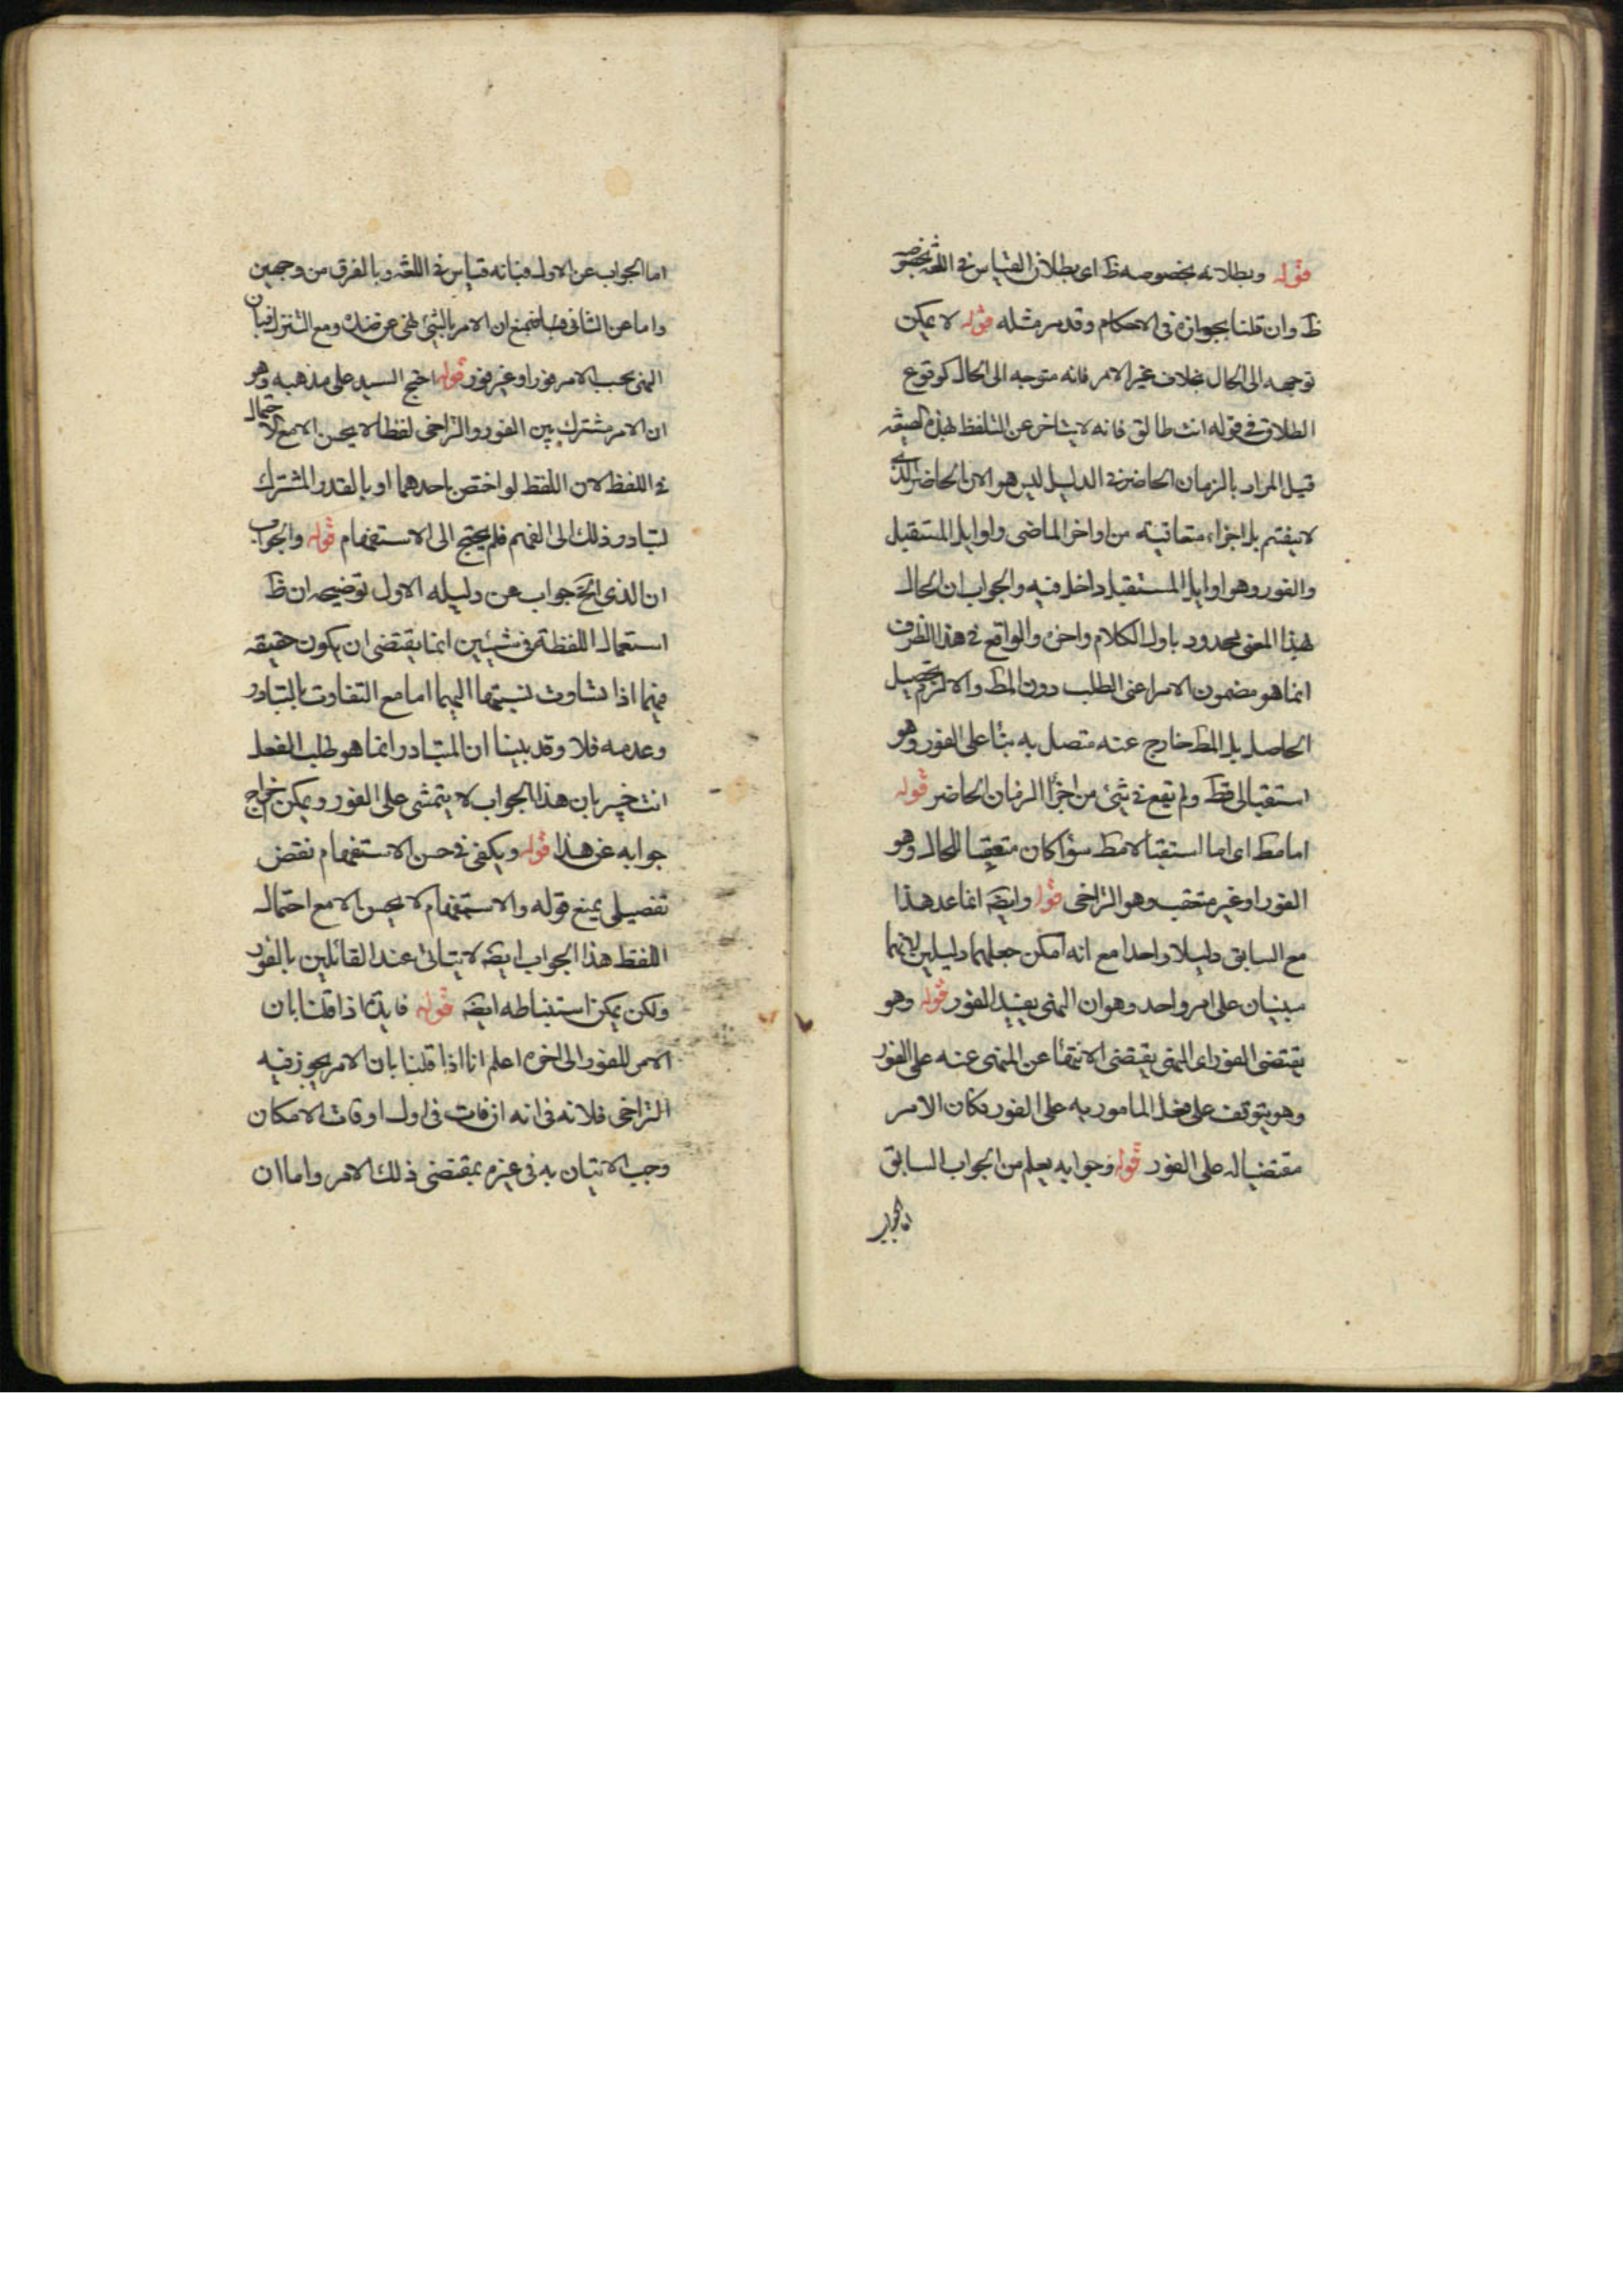 قوله وبطلانه بخصوصه ظ اى بطلان القياس فى اللغة بخصوصه
ظ وان قلنا بجوازه فى الاحكام وقد مر مثله قوله لا يمكن
توجهه الى الحال بخلاف غير الامر فانه متوجه الى الحال كوقوع
الطلاق فى قوله انت طالق فانه لا يتاخر عن التلفظ بهذه الصيغة
قيل المراد بالزمان الحاضر فى الدليل ليس هو الان الحاضر الذى
لا ينقسم بل اجزاء متعاقبة من اواخر الماضى واوايل المستقبل
والفور وهو اوايل المستقبل داخل فيه والجواب ان الحال
بهذا المعنى محدود باول الكلام واخره والواقع فى هذا الظرف
انما هو مضمون الامر اعنى الطلب دون المط والا لزم تحصيل
الحاصل بل المط خارج عنه متصل به بناء على الفور وهو
استقبالى قط ولم يقع فى شئ من اجزاء الزمان الحاضر قوله
اما مط اى اما استقبالا مط سواء كان متعقبا للحال وهو
الفور او غير متعقب وهو التراخى قوله وايضا انما عد هذا
مع السابق دليلا واحدا مع انه امكن جعلهما دليلين لانهما
مبنيان على امر واحد وهو ان النهى يفيد الفور قوله وهو
يقتضى الفور اى النهى يقتضى الانتهاء عن المنهى عنه على الفور
وهو يتوقف على فعل المامور به على الفور فكان الامر
مقتضيا له على الفور قوله وجوابه يعلم من الجواب السابق
اما الجواب
اما الجواب عن الاول فبانه قياس فى اللغة وبالفرق من وجهين
واما عن الثانى فبمنع ان الامر بالشئ نهى عن ضده ومع التنزل فبان
النهى بحسب الامر فورا او غير فور قوله احتج السيد على مذهبه وهو
ان الامر مشترك بين الفور والتراخى لفظا لا يحسن الا مع الاحتمال
فى اللفظ لان اللفظ لو اختص باحدهما او بالقدر المشترك
لتبادر ذلك الى الفهم فلم يحتج الى الاستفهام قوله والجواب
ان الذى الخ جواب عن دليله الاول توضيحه ان ظ
استعمال اللفظة فى شيئين انما يقتضى ان يكون حقيقة
فيهما اذا تساوت نسبتها اليهما اما مع التفاوت بالتبادر
وعدمه فلا وقد بينا ان المتبادر انما هو طلب الفعل
انت خبير بان هذا الجواب لا يتمشى على الفور ويمكن اخراج
جوابه عن هذا قوله ويكفى فى حسن الاستفهام نقض
تفصيلى بمنع قوله والاستفهام لا يحسن الا مع احتمال
اللفظ هذا الجواب ايضا لا يتاتى عند القائلين بالفور
ولكن يمكن استنباطه ايضا قوله فايدة اذا قلنا بان
الامر للفور الى اخره اعلم انا اذا قلنا بان الامر يجوز فيه
التراخى فلا نه فى انه ان فات فى اول اوقات الامكان
وجب الاتيان به فى غيره بمقتضى ذلك الامر واما ان